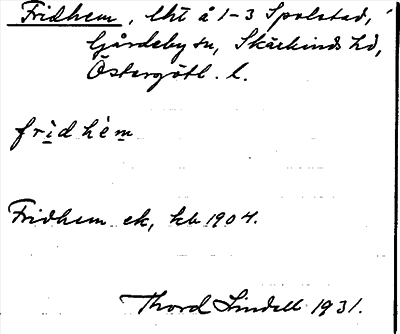 Fridhem, lht å 1-3 Spolstad,
Gårdeby sn, Skärkinds hd,
Östergötl. l.
fri̲dhèm̲
Fridhem ek, kb 1904.
Thord Lindell 1931.